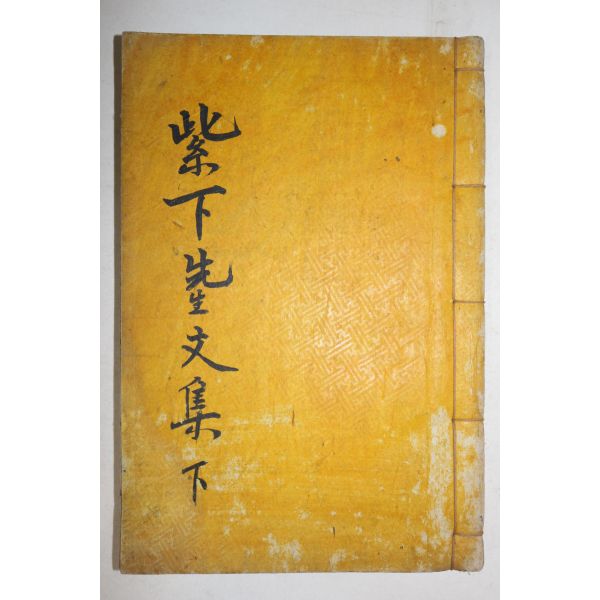 紫下先生文集 下